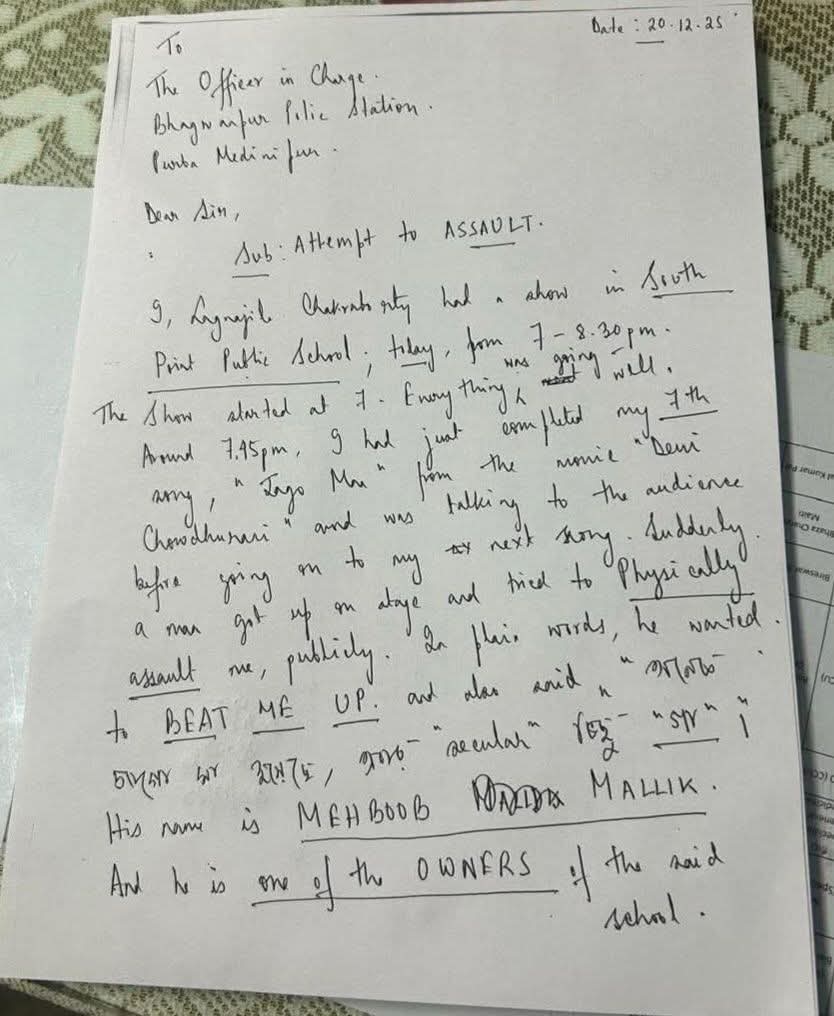 Date : 20.12.25
To
The Officer in Charge.
Bhagwanpur Polic Station.
Purba Medinipur.
Dear Sir,
Sub: Attempt to ASSAULT.
I, Lagnajita Chakraborty had a show in South
Point Public School, today, from 7 - 8.30pm.
The Show started at 7. Everything was going well.
Around 7.45pm, I had just completed my 7th
song, "Jago Maa" from the movie "Devi
Chowdhurani" and was talking to the audience
before going on to my next song. Suddenly
a man got up on stage and tried to Physically
assault me, publicly. In plain words, he wanted
to BEAT ME UP. and also said, "অনেক
জাগো মা হয়েছে, এবার "secular" কিছু "গা" "।
His name is MEHBOOB MALLIK.
And he is one of the OWNERS of the said
school.